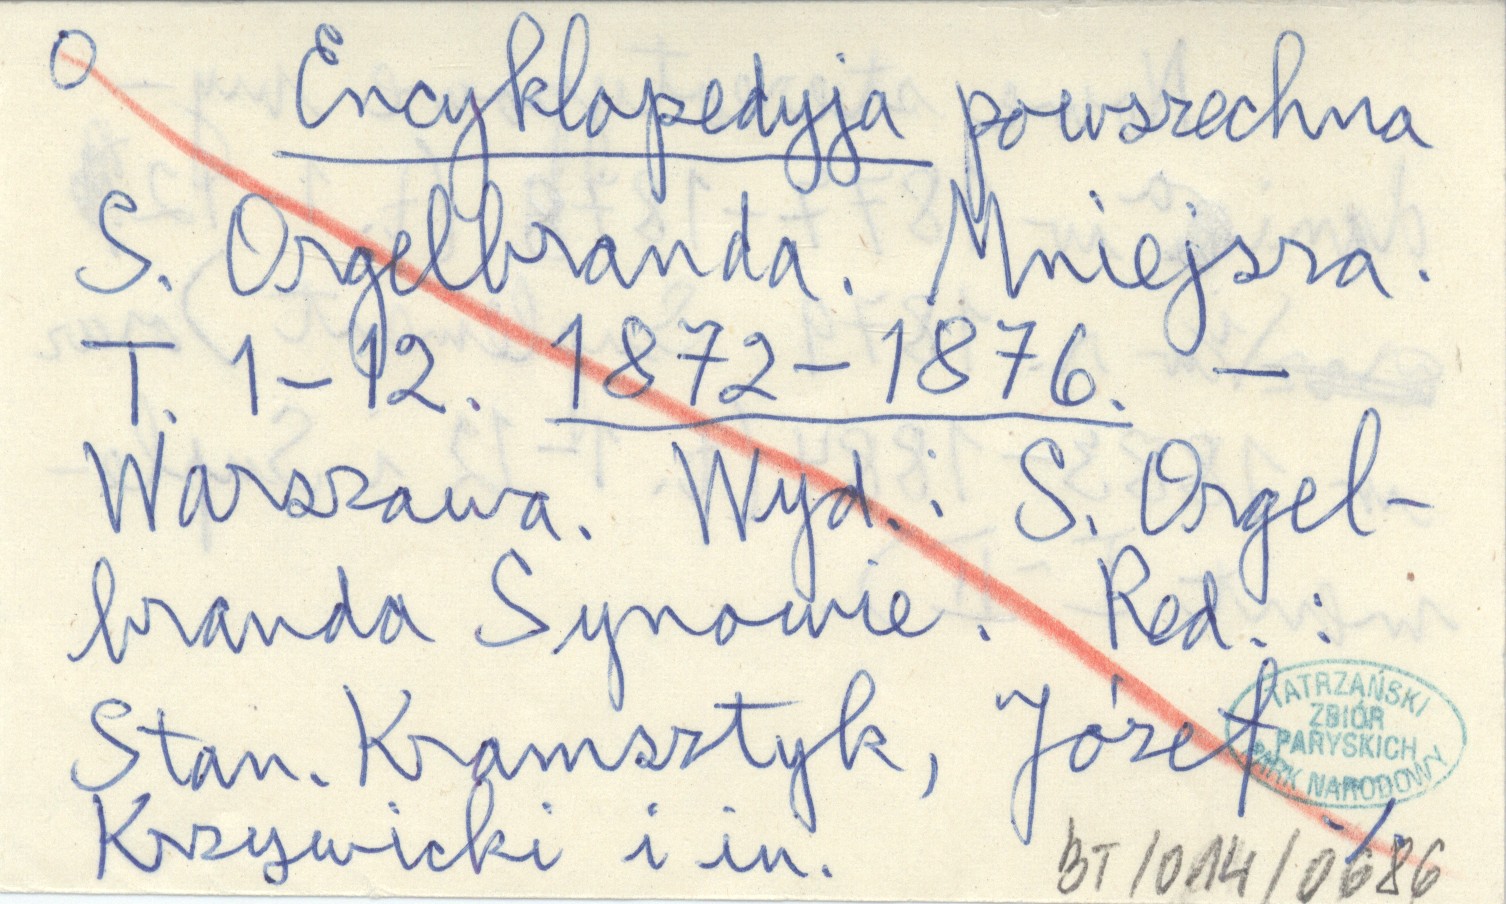 O Encyklopedyja powszechna
S. Orgelbranda. Mniejsza.
T. 1-12. 1872-1876. —
Warszawa. Wyd.: S. Orgel-
branda Synowie. Red.:
Stan. Kramsztyk, Józef
Krzywicki i in. -/.
TATRZAŃSKI
ZBIÓR
PARYSKICH
PARK NARODOWY
BT/014/0686